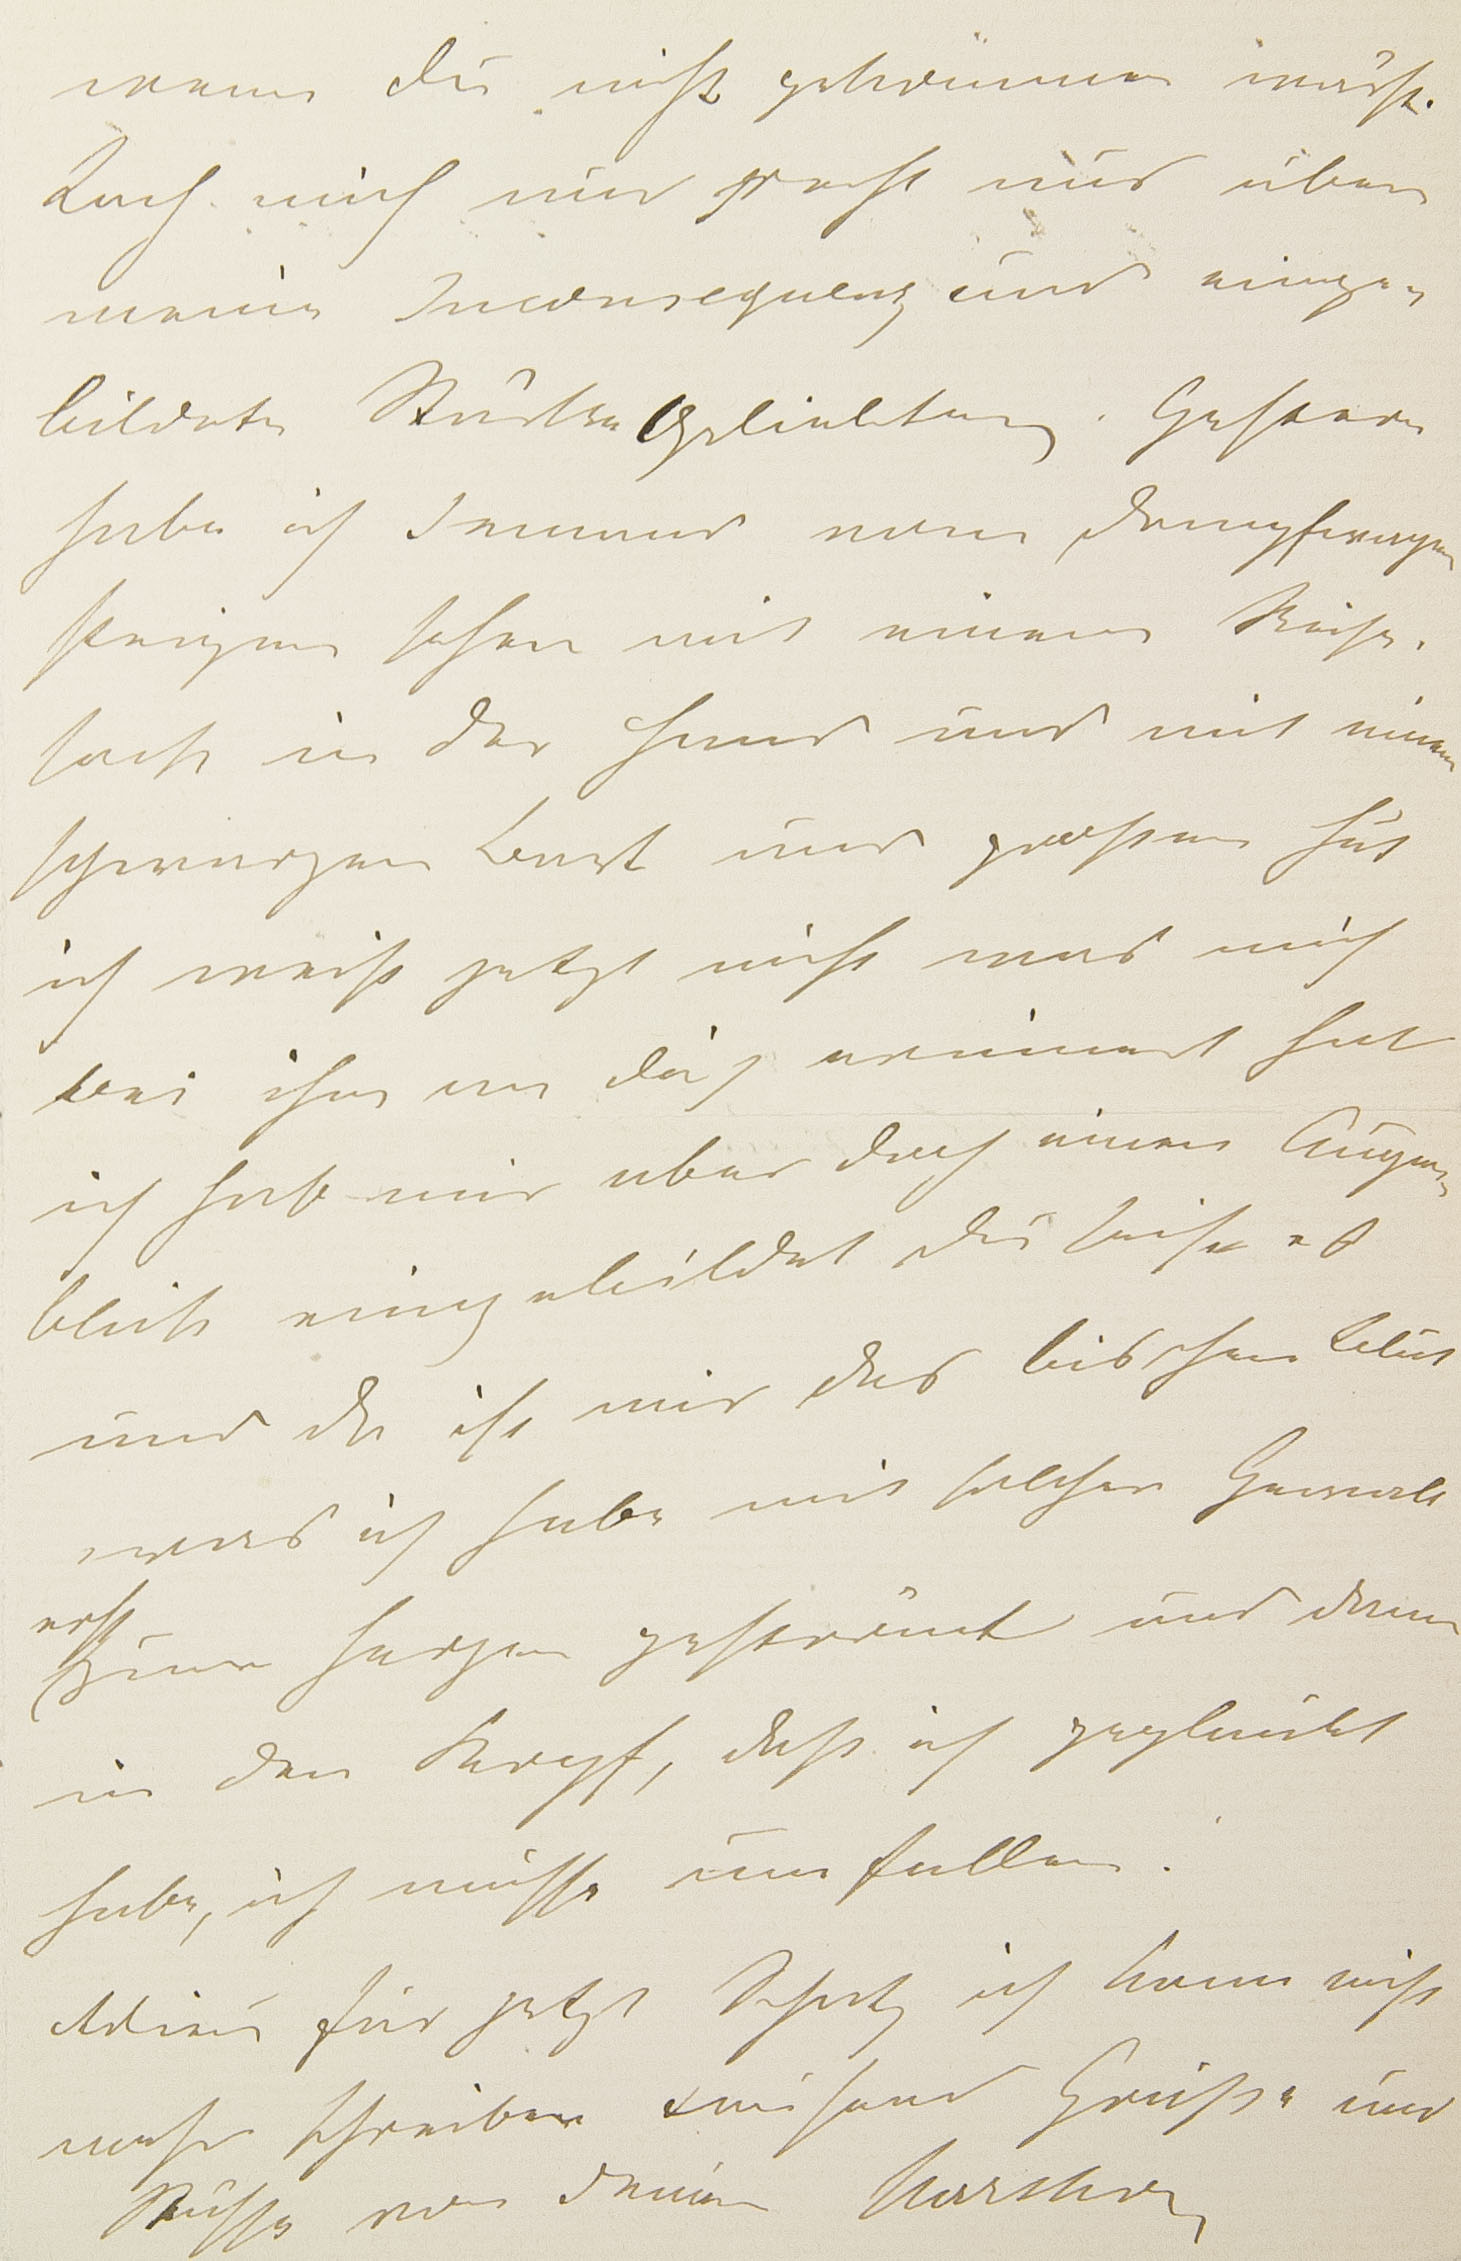 wenn du nicht gekommen wärst.
Lach mich nur recht aus über
meine Inconsequenz und einge-
bildete Stärke Geliebter. Gestern
habe ich Jemand vom Dampfwagen
steigen sehen mit einem Reise-
sack in der Hand und mit einem
schwarzen Bart und grossen Hut
ich weiss jetzt nicht was mich
bei ihm an dich erinnert hat
ich hab mir aber doch einen Augen-
blick eingebildet du seist es
und da ist mir das bischen Blut
was ich habe mit solcher Gewalt
erst
zum Herzen geströmt und dann
in den Kopf, dass ich geglaubt
habe, ich müsse umfallen.
Adieu für jetzt Schatz ich kann nicht
mehr schreiben tausend Grüsse und
Küsse von deinem